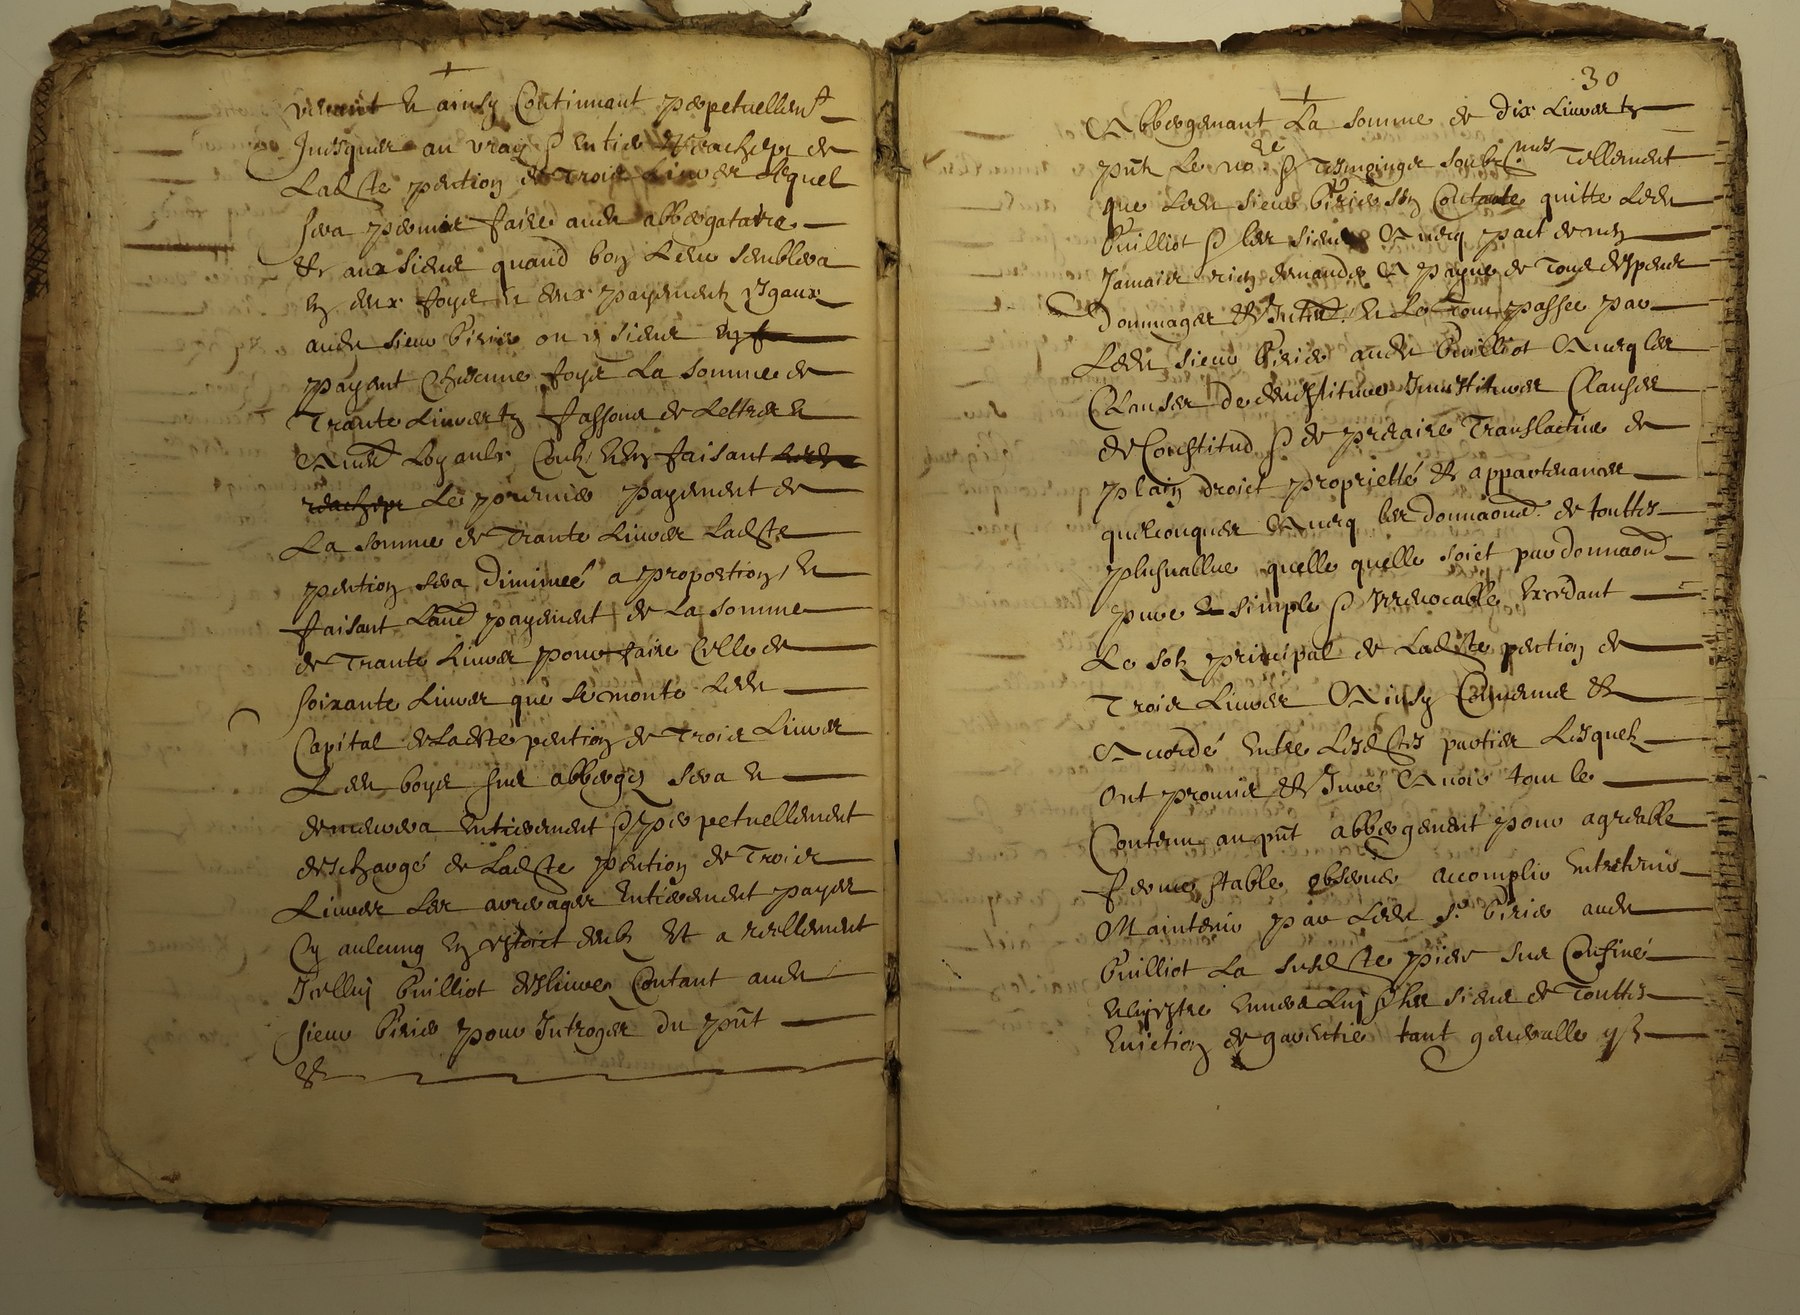 +
venant et ainsy Continuant perpetuellemt
Jusques au vray & entier Reachept de
Ladte pention de Trois Livres Lequel
sera permis faire audt abbergataire
Et aux siens quand bon Leur semblera
En deux foys et deux payements Esgaux
audt sieur Pirier ou es siens
payant Chescune foys La somme de
Trante Livres tz fassons de Lettres et
Autres Loyaulx Coutz Et en faisant
reachept Le premier payement de
La somme de Trante Livres Ladte
pention sera Diminueé a proportion, et
faisant Laud payement de La somme
de Trante Livres pour faire Celle de
soixante Livres que se monte Ledt
Capital de Ladte pention de Trois Livres
Ledt boys sus abbergé sera et
demeurera Entierement & perpetuellement
deschargé de Ladte pention de Trois
Livres Les arrerages Entierement payes
sy aulcung En estoict deubz Et a reellement
Icelluy Builliot deslivré Contant audt
sieur Pirier pour Introges du pnt
Et
30
+
Abbergemant La somme de Dix Livres tz
pnt Le nore & tesmoings soubznes Tellement
que Ledt sieur Pirier sen Contante quitte Ledt
Builliot & les siens Avecq pact de n'en
Jamais rien demander A payne de Tous despens
Dommages Et Intts. Et Le tout passee par
Ledt sieur Pirier audt Builliot Avecq les
Clauses De devestitures Investitures Clauses
de Constitud & de precaire Translactives de
plain droict proprietté Et appartenances
quelconques Avecq les donnaond de touttes
plusvallue quelle quelle soict par donnaond
pure Et simple & Irrevocable Excedant
Le sotz principal de Ladte pention de
Trois Livres Ainsy Convenus Et
Accordé Entre Lesdtes parties Lesquelz
Ont promis Et Juré Avoir tout le
Contenu au pnt abbergement pour agreable
ferme stable observer accomplir Entretenir
Maintenir par Ledt sr Pirier audt
Builliot La susdte piece sus Confiné
Envers Luy & les siens de Touttes
Eviction de garentie tant generalle qse